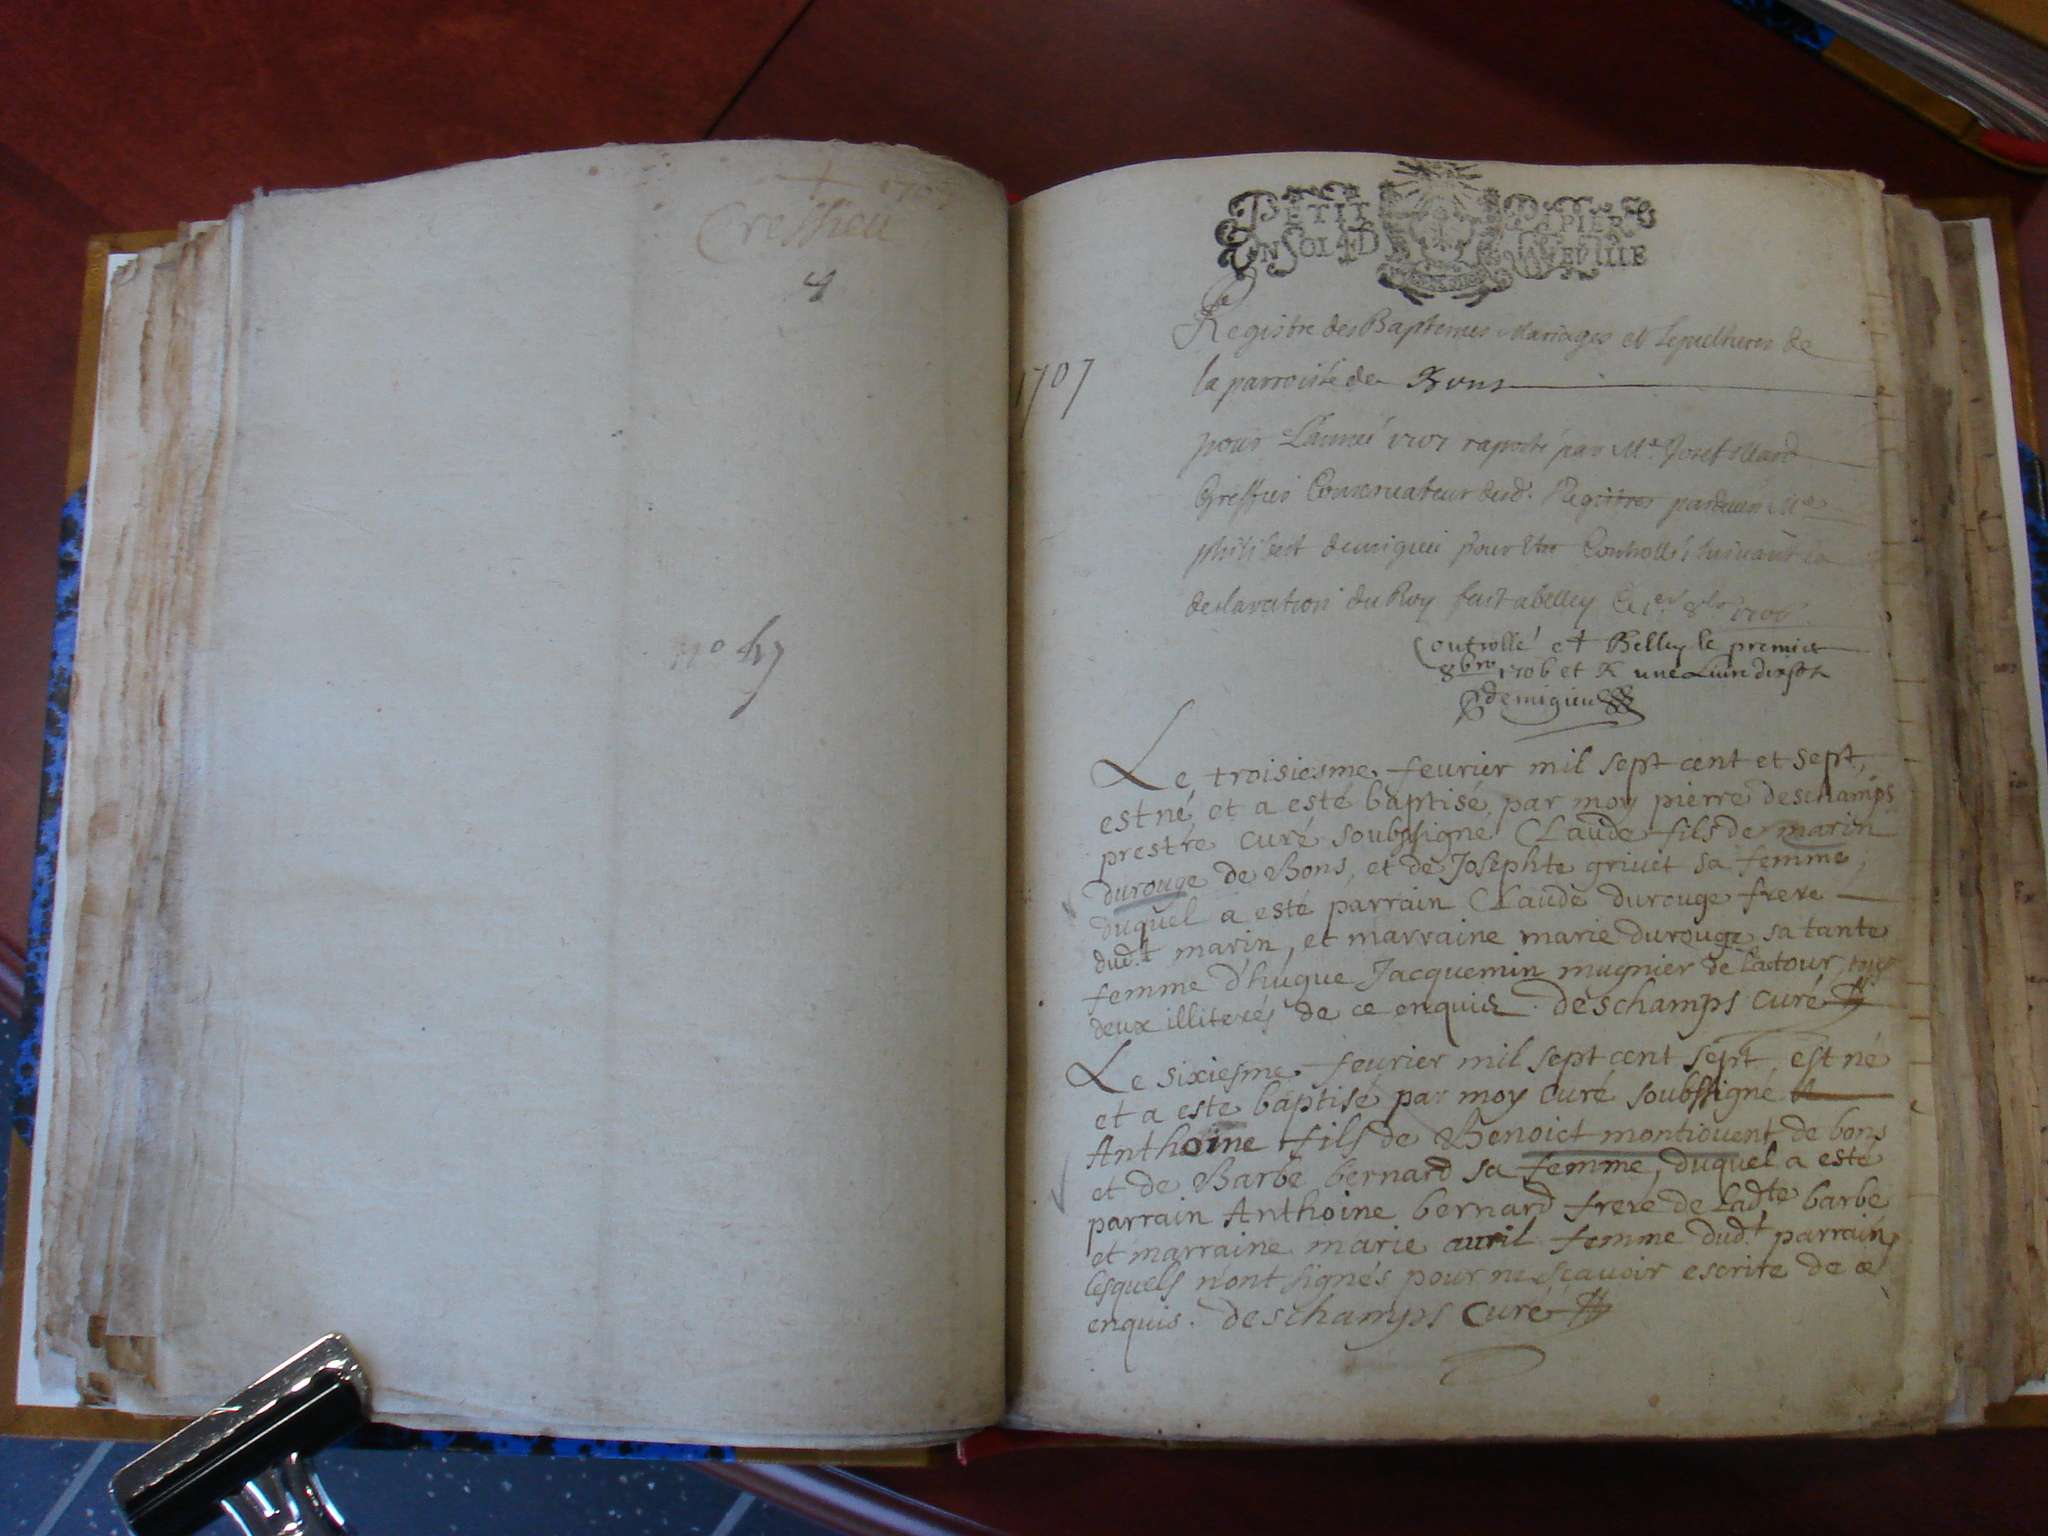 1707
Cressieu
4
no 47
PETIT PAPIER
UN SOL 4 D LA FEUILLE
1707
Registre des Baptemes Mariages et Sepultures de
la parroisse de Bons
pour L'année 1707 raporté par Me
Greffier Conservateur dud. Registres pardevan Me
philibert demigieu pour etre Controllé suivant la
declaration du Roy fait a belley Le 1er 8bre 1706
Controllé et Belley le premier
8bre 1706 et R une Livre dix sols
demigieu
Le troisiesme feurier mil sept cent et sept,
est né et a esté baptisé par moy pierre deschamps
prestre curé soubssigné Claude fils de marin
durouge de Bons, et de Josephte grivet sa femme,
duquel a esté parrain Claude durouge frere
dud.t marin, et marraine marie durouge sa tante
femme d'hugue Jacquemin mugnier de latour, tous
deux illiterés de ce enquis. deschamps curé
Le sixiesme feurier mil sept cent sept est né
et a esté baptisé par moy curé soubssigné
Anthoine fils de Benoict montiouent de bons
et de Barbe bernard sa femme, duquel a esté
parrain Anthoine bernard frere de ladte barbe
et marraine marie auril femme dud.t parrain,
lesquels n'ont signés pour ne sçauoir escrire de ce
enquis. deschamps curé